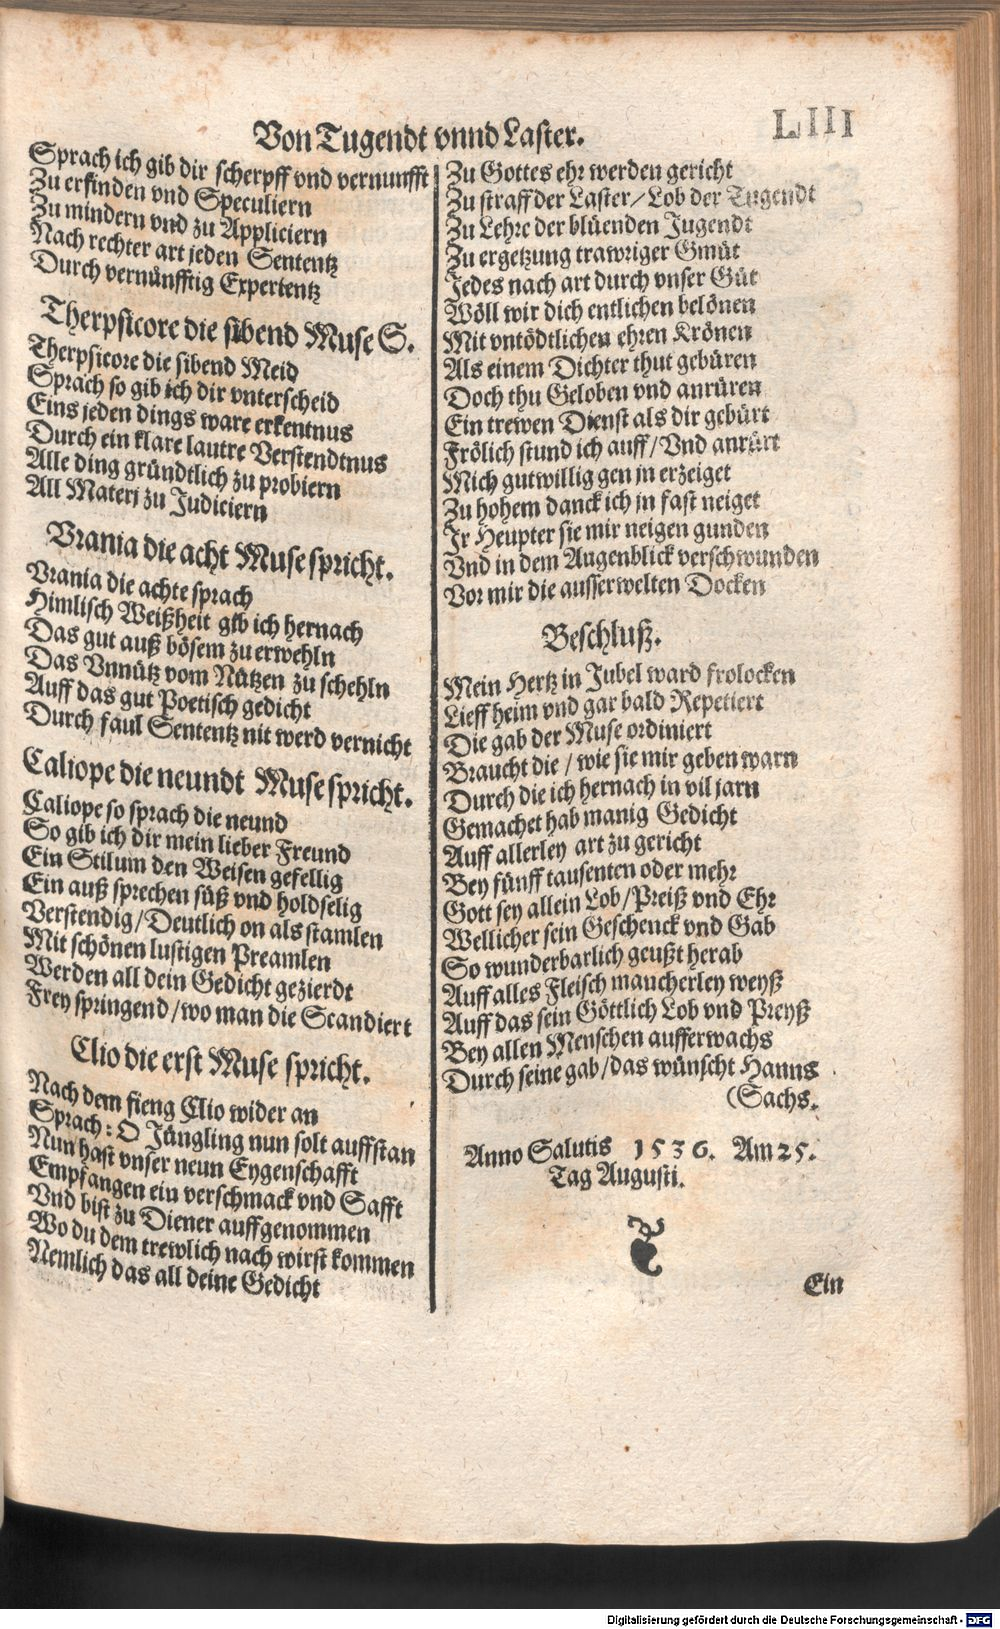 Von Tugendt vnnd Laster.
LIII
Sprach ich gib dir scherpff vnd vernunfft
Zu erfinden vnd Speculiern
Zu mindern vnd zu Appliciern
Nach rechter art jeden Sententz
Durch vernünfftig Expertentz
Therpsicore die sibend Muse S.
Therpsicore die sibend Meid
Sprach so gib ich dir vnterscheid
Eins jeden dings ware erkentnus
Durch ein klare lautre Verstendtnus
Alle ding gründtlich zu probiern
All Materj zu Judiciern
Vrania die acht Muse spricht.
Vrania die achte sprach
Himlisch Weißheit gib ich hernach
Das gut auß bösem zu erwehln
Das Vnnütz vom Nützen zu schehln
Auff das gut Poetisch gedicht
Durch faul Sententz nit werd vernicht
Caliope die neundt Muse spricht.
Caliope so sprach die neund
So gib ich dir mein lieber Freund
Ein Stilum den Weisen gefellig
Ein auß sprechen süß vnd holdselig
Verstendig/Deutlich on als stamlen
Mit schönen lustigen Preamlen
Werden all dein Gedicht gezierdt
Frey springend/wo man die Scandiert
Clio die erst Muse spricht.
Nach dem fieng Clio wider an
Sprach: O Jüngling nun solt auffstan
Nun hast vnser neun Eygenschafft
Empfangen ein verschmack vnd Safft
Vnd bist zu Diener auffgenommen
Wo du dem trewlich nach wirst kommen
Nemlich das all deine Gedicht
Zu Gottes ehr werden gericht
Zu straff der Laster/Lob der Tugendt
Zu Lehre der blüenden Jugendt
Zu ergetzung trawriger Gmüt
Jedes nach art durch vnser Güt
Wöll wir dich entlichen belönen
Mit vntödtlichen ehren Krönen
Als einem Dichter thut gebüren
Doch thu Geloben vnd anrüren
Ein trewen Dienst als dir gebürt
Frölich stund ich auff/Vnd anrürt
Mich gutwillig gen jn erzeiget
Zu hohem danck ich jn fast neiget
Jr Heupter sie mir neigen gunden
Vnd in dem Augenblick verschwunden
Vor mir die ausserwelten Docken
Beschluß.
Mein Hertz in Jubel ward frolocken
Lieff heim vnd gar bald Repetiert
Die gab der Muse ordiniert
Braucht die / wie sie mir geben warn
Durch die ich hernach in vil jarn
Gemachet hab manig Gedicht
Auff allerley art zu gericht
Bey fünff tausenten oder mehr
Gott sey allein Lob/Preiß vnd Ehr
Wellicher sein Geschenck vnd Gab
So wunderbarlich geußt herab
Auff alles Fleisch mancherley weyß
Auff das sein Göttlich Lob vnd Preyß
Bey allen Menschen aufferwachs
Durch seine gab/das wünscht Hanns
(Sachs.
Anno Salutis 1536. Am 25.
Tag Augusti.
Ein
Digitalisierung gefördert durch die Deutsche Forschungsgemeinschaft - DFG